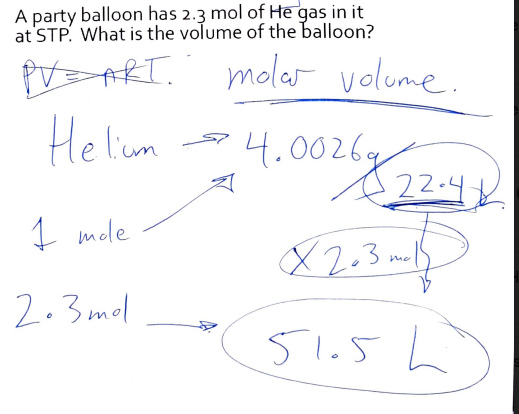 A party balloon has 2.3 mol of He gas in it
at STP. What is the volume of the balloon?
PV=nRT. molar volume.
Helium → 4.0026g
22.4 L
1 mole
X 2.3 mol
2.3 mol → 51.5 L